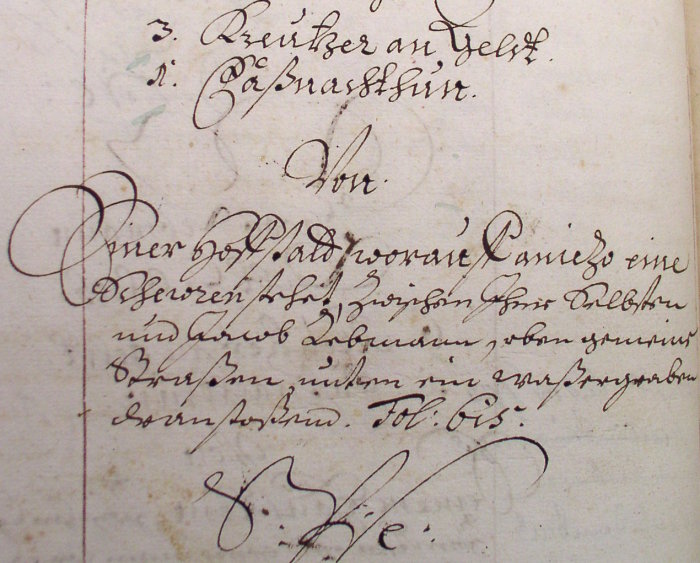 3. Kreutzer an Geldt.
1. Faßnachthun.
Von
Einer Hoffstatt worauff anietzo eine
Scheüren stehet, zwischen Ihme Selbsten
und Jacob Lebmann, oben gemeine
Straßen, unten ein waßergraben
dranstoßend. Fol: 615.
S.